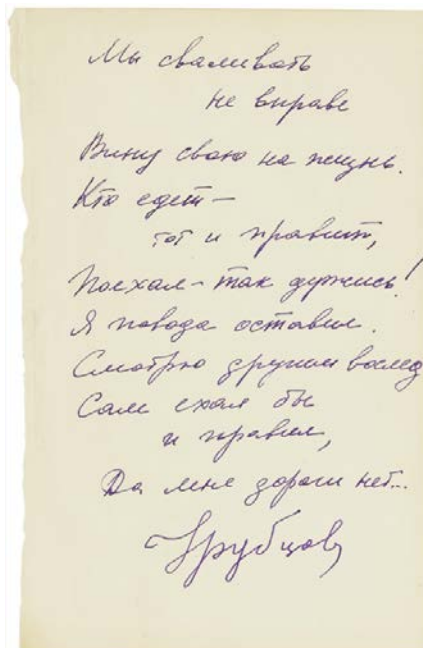 Мы сваливать
не вправе
Вину свою на жизнь.
Кто едет –
тот и правит,
Поехал – так держись!
Я повода оставил.
Смотрю другим вослед
Сам ехал бы
и правил,
Да мне дороги нет...
Н Рубцов